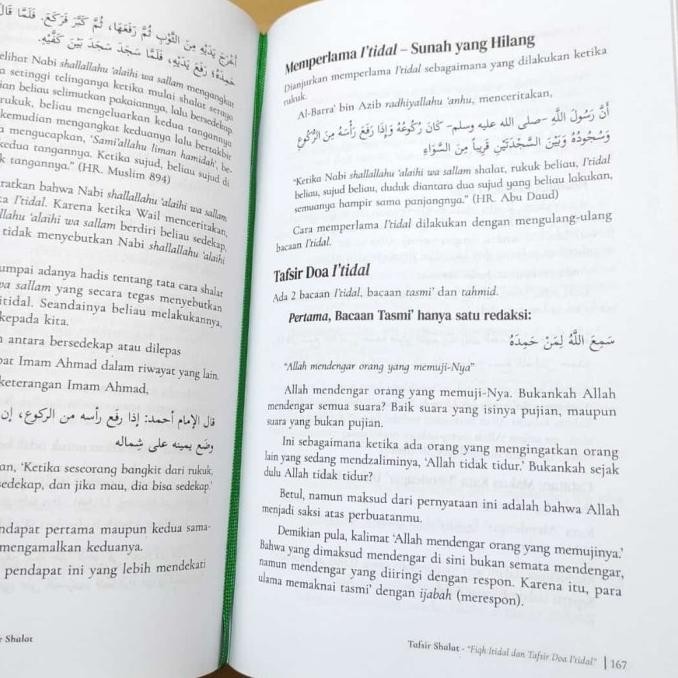 أخرج يديه من الثوب ثم رفعهما، ثم كبر فركع، فلما قال
حمده؛ رفع يديه، فلما سجد سجد بين كفيه.
elihat Nabi shallallahu 'alaihi wa sallam mengangkat
a setinggi telinganya ketika mulai shalat seraya
ian beliau selimutkan pakaiannya, lalu bersedekap,
rukuk, beliau mengeluarkan kedua tangannya
kemudian mengangkat keduanya lalu bertakbir
a mengucapkan, 'Sami'allahu liman hamidah', be-
kedua tangannya. Ketika sujud, beliau sujud di
k tangannya." (HR. Muslim 894)
ratkan bahwa Nabi shallallahu 'alaihi wa sallam
ka I'tidal. Karena ketika Wail menceritakan,
llahu 'alaihi wa sallam berdiri beliau sedekap,
tidak menyebutkan Nabi shallallahu 'alaihi
umpai adanya hadis tentang tata cara shalat
wa sallam yang secara tegas menyebutkan
itidal. Seandainya beliau melakukannya,
kepada kita.
n antara bersedekap atau dilepas
pat Imam Ahmad dalam riwayat yang lain.
keterangan Imam Ahmad,
قال الإمام أحمد: إذا رفع رأسه من الركوع، إن
وضع يمينه على شماله
an, 'Ketika seseorang bangkit dari rukuk,
sedekap, dan jika mau, dia bisa sedekap.'
ndapat pertama maupun kedua sama-
mengamalkan keduanya.
pendapat ini yang lebih mendekati
r Shalat
Memperlama I'tidal – Sunah yang Hilang
Dianjurkan memperlama I'tidal sebagaimana yang dilakukan ketika
rukuk.
Al-Barra' bin Azib radhiyallahu 'anhu, menceritakan,
أَنَّ رَسُولَ اللَّهِ -صلى الله عليه وسلم- كَانَ رُكُوعُهُ وَإِذَا رَفَعَ رَأْسَهُ مِنَ الرُّكُوعِ
وَسُجُودُهُ وَبَيْنَ السَّجْدَتَيْنِ قَرِيبًا مِنَ السَّوَاءِ
"Ketika Nabi shallallahu 'alaihi wa sallam shalat, rukuk beliau, I'tidal
beliau, sujud beliau, duduk diantara dua sujud yang beliau lakukan,
semuanya hampir sama panjangnya." (HR. Abu Daud)
Cara memperlama I'tidal dilakukan dengan mengulang-ulang
bacaan I'tidal.
Tafsir Doa I'tidal
Ada 2 bacaan I'tidal, bacaan tasmi' dan tahmid.
Pertama, Bacaan Tasmi' hanya satu redaksi:
سَمِعَ اللَّهُ لِمَنْ حَمِدَهُ
"Allah mendengar orang yang memuji-Nya"
Allah mendengar orang yang memuji-Nya. Bukankah Allah
mendengar semua suara? Baik suara yang isinya pujian, maupun
suara yang bukan pujian.
Ini sebagaimana ketika ada orang yang mengingatkan orang
lain yang sedang mendzaliminya, 'Allah tidak tidur.' Bukankah sejak
dulu Allah tidak tidur?
Betul, namun maksud dari pernyataan ini adalah bahwa Allah
menjadi saksi atas perbuatanmu.
Demikian pula, kalimat 'Allah mendengar orang yang memujinya.'
Bahwa yang dimaksud mendengar di sini bukan semata mendengar,
namun mendengar yang diiringi dengan respon. Karena itu, para
ulama memaknai tasmi' dengan ijabah (merespon).
Tafsir Shalat - "Fiqh Itidal dan Tafsir Doa I'tidal" | 167